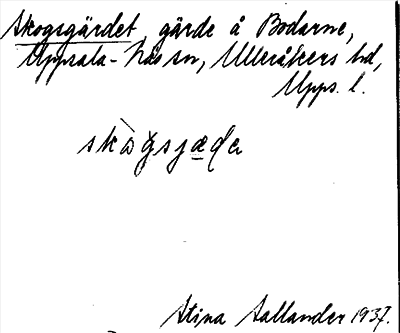 Skogsgärdet, gärde å Bodarne,
Uppsala-Näs sn, Ulleråkers hd,
Upps. l.
skògsjæ̱da
Stina Sallander 1937.